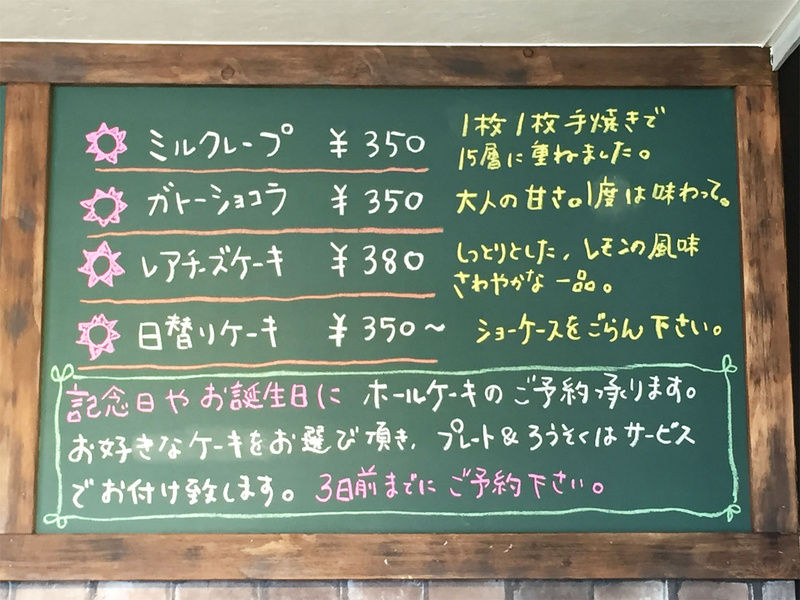 ミルクレープ ¥350 1枚1枚手焼きで
15層に重ねました。
ガトーショコラ ¥350 大人の甘さ。1度は味わって。
レアチーズケーキ ¥380 しっとりとした、レモンの風味
さわやかな一品。
日替りケーキ ¥350〜 ショーケースをごらん下さい。
記念日やお誕生日に ホールケーキのご予約承ります。
お好きなケーキをお選び頂き、プレート&ろうそくはサービス
でお付け致します。3日前までにご予約下さい。